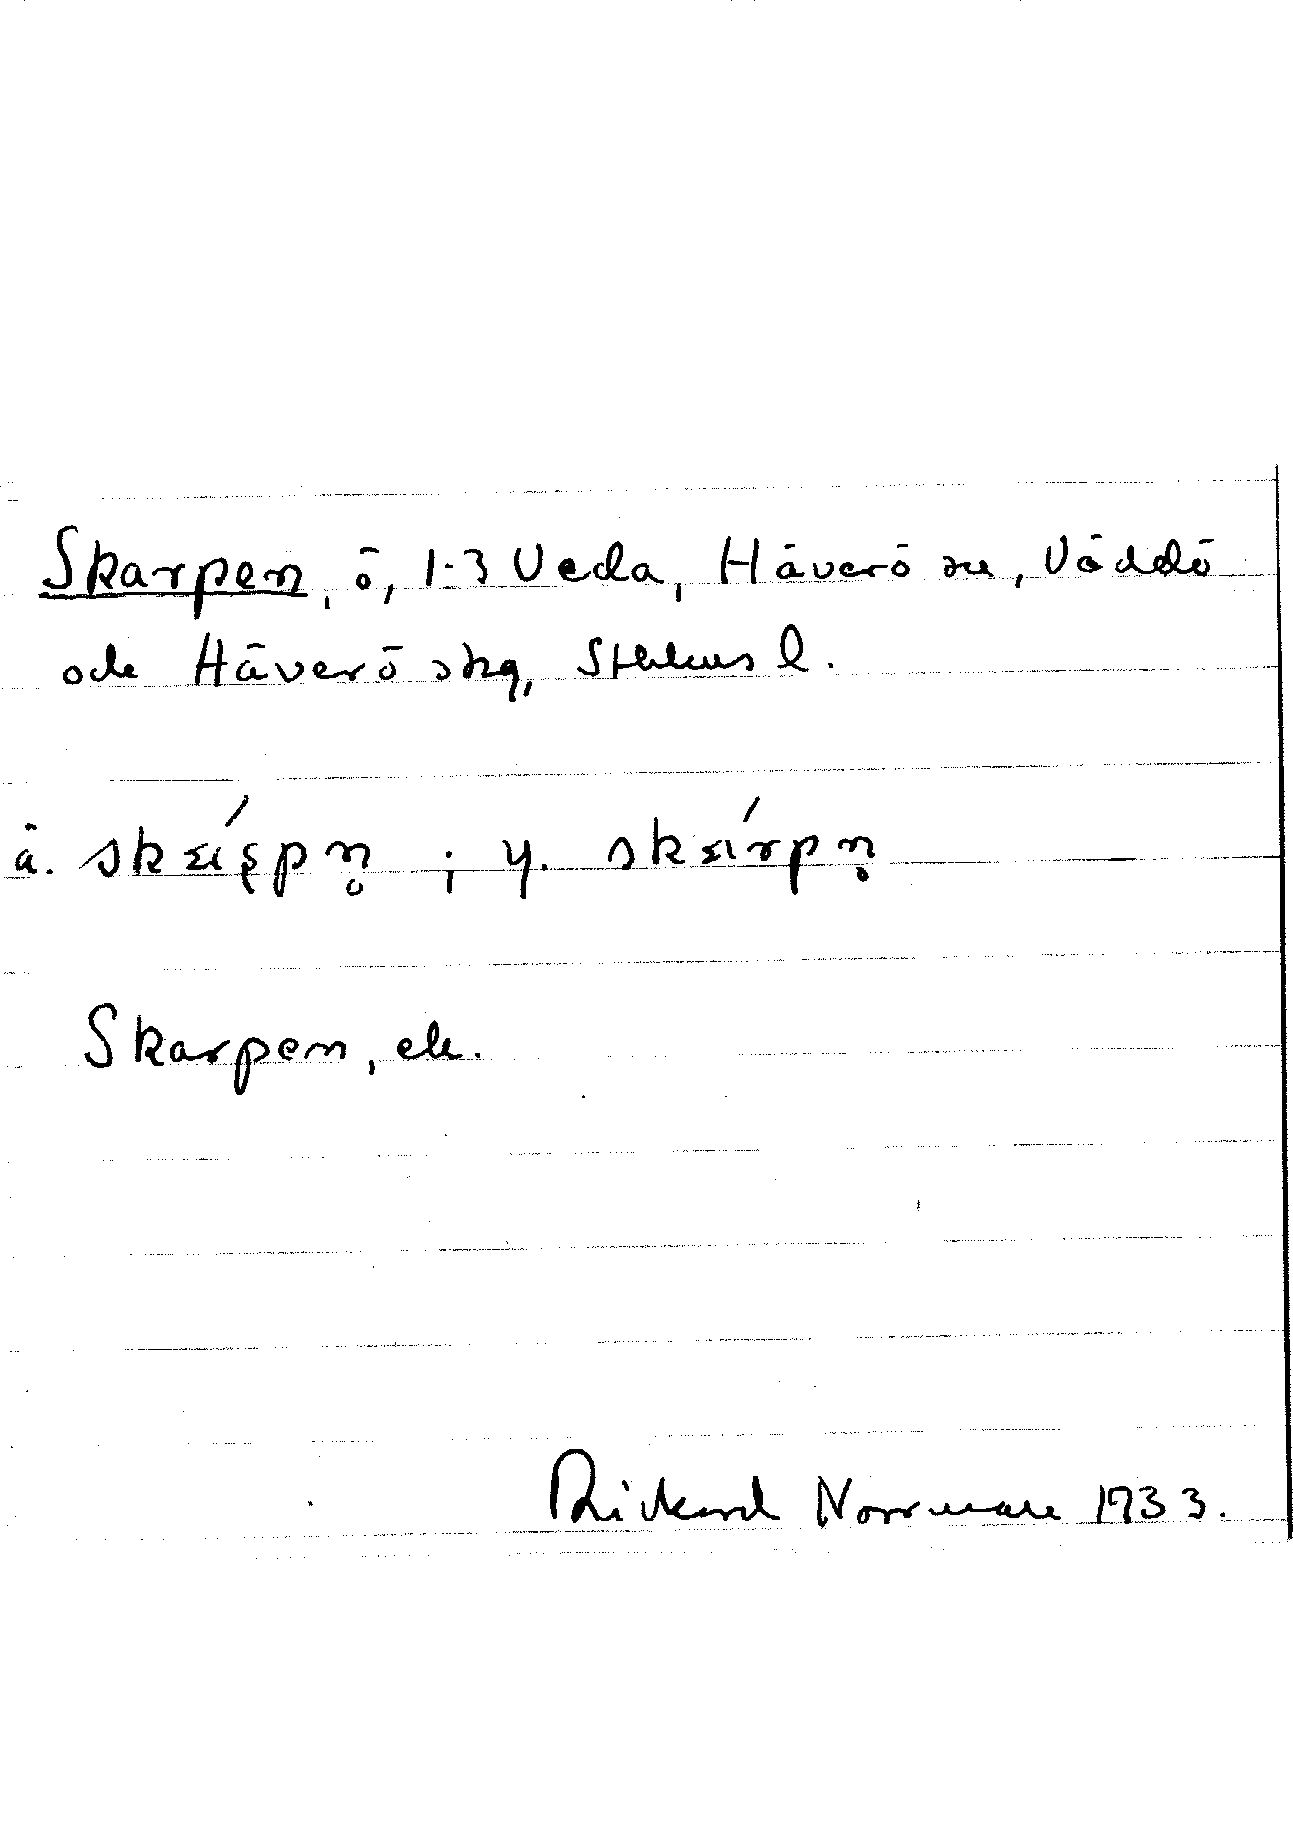 Skarpen, ö, 1-3 Veda, Häverö sn, Väddö
och Häverö skg, Sthlms l.
ä. ; y.
Skarpen, ek.
Rickard Norrman 1933.